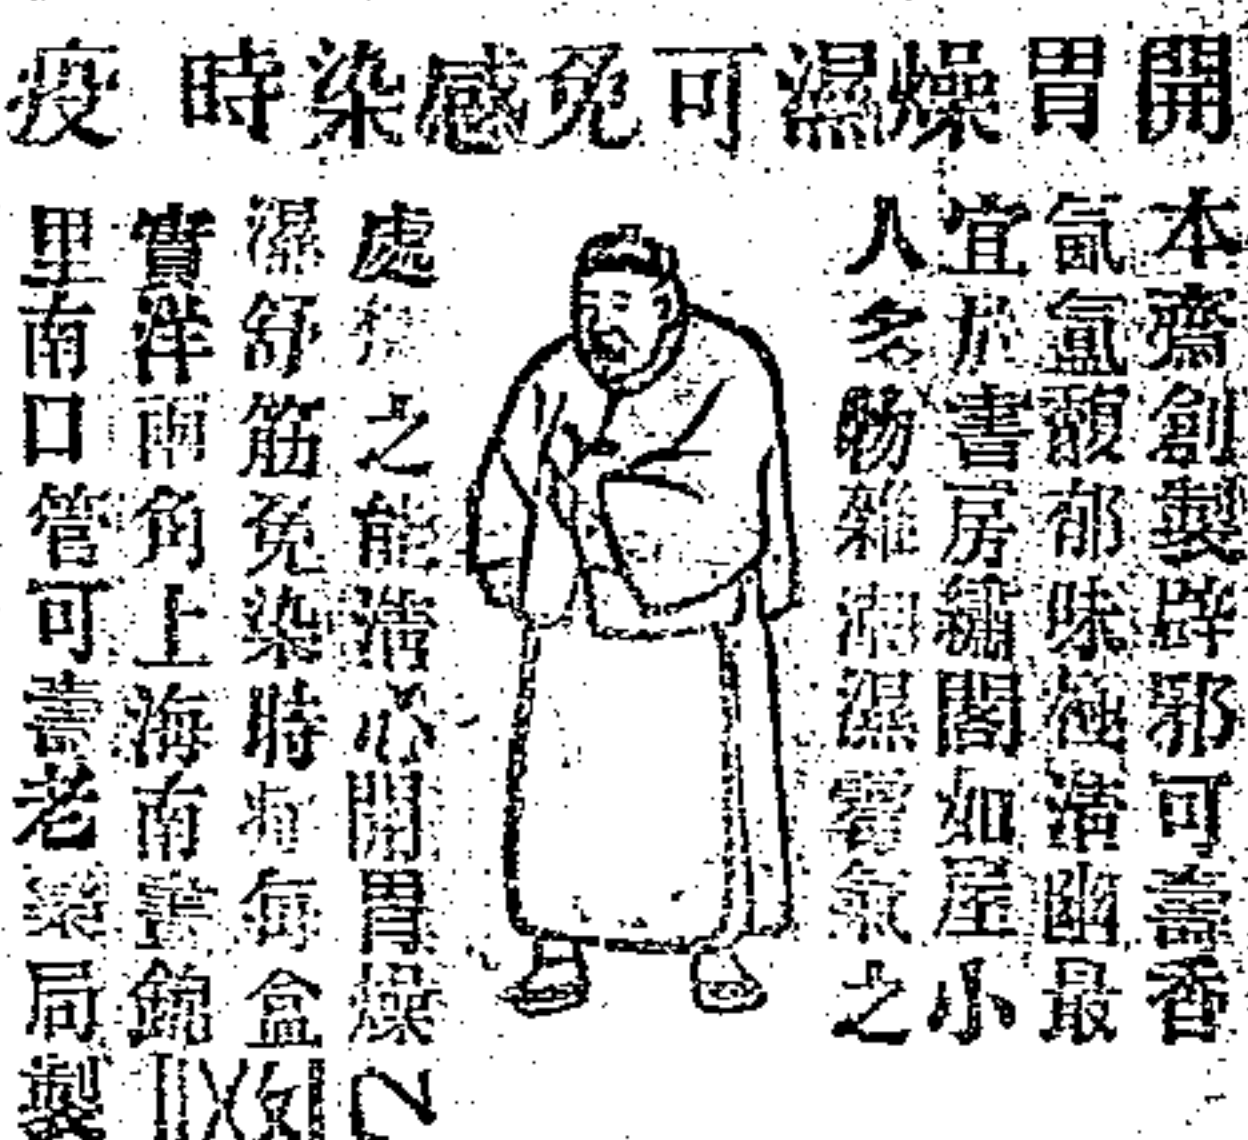 開胃燥濕可免感染時疫
本齋創製辟邪可壽香
氤氳馥郁味極清幽最
宜於書房繡閣如屋小
人多雜潮濕霉氣之
處焚之能清心開胃燥
濕舒筋免染時疫每盒
實洋兩角上海南錦
里南口管可壽老藥局製